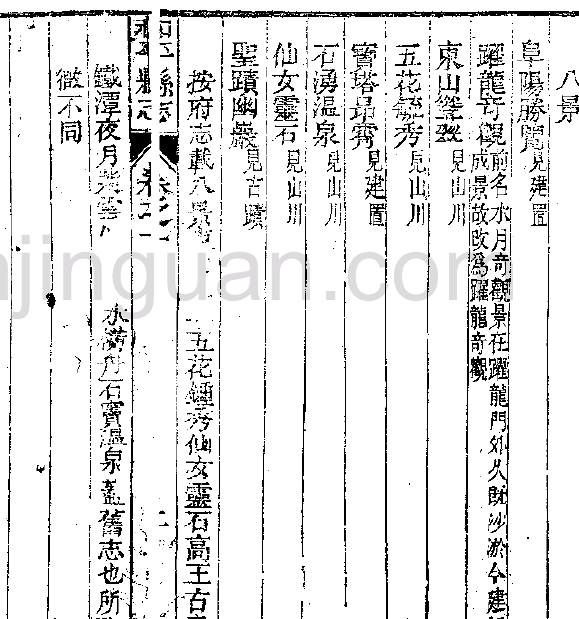 八景
阜陽勝覽見建置
躍龍奇觀前名水月奇觀景在躍龍門外久既沙淤今建
成景故改為躍龍奇觀
東山聳翠見山川
五花毓秀見山川
寶塔昂霄見建置
石湧温泉見山川
仙女靈石見山川
聖蹟幽巖見古蹟
按府志載八景 五花鍾秀仙女靈石高王古
縣志 卷之一
鐵潭夜月 水 丹石寶温泉盖舊志也所
微不同
jinguan.com